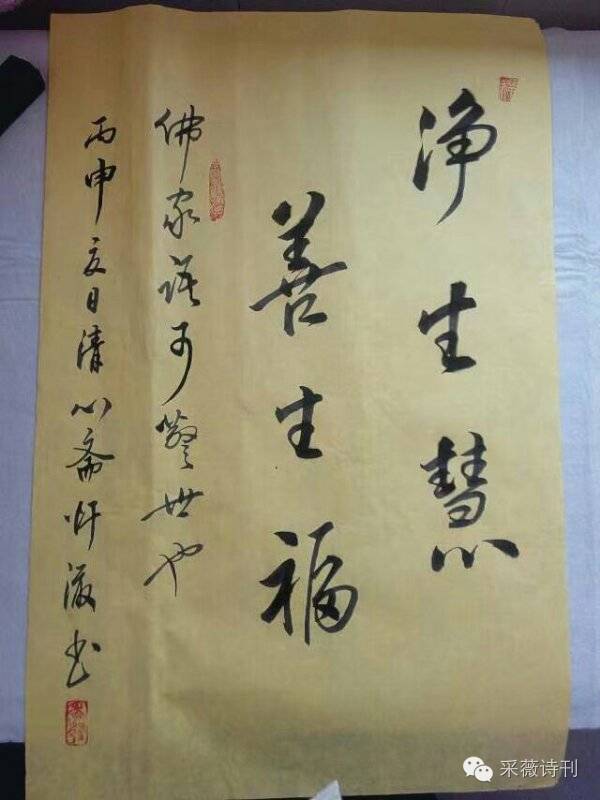 净生慧
善生福
佛家语可警世也
丙申夏日清心斋
书
采薇诗刊